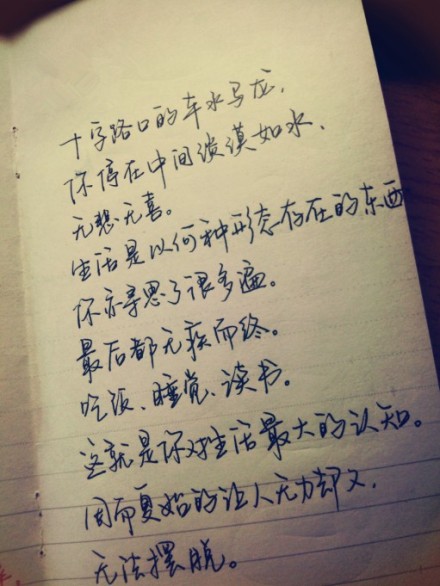 十字路口的车水马龙，
你停在中间淡漠如水，
无愁无喜。
生活是以何种形态存在的东西
你亦寻思了很多遍。
最后都无疾而终。
吃饭、睡觉、读书。
这就是你对生活最大的认知。
因而夏始的让人无力却又，
无法摆脱。